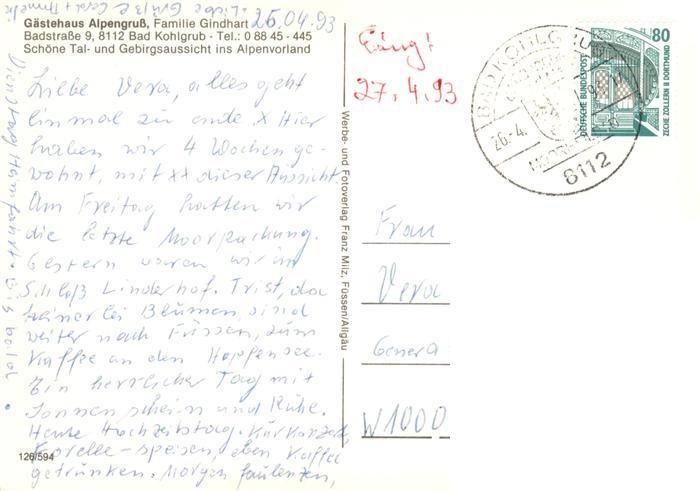 Gästehaus Alpengruß, Familie Gindhart
Badstraße 9, 8112 Bad Kohlgrub - Tel.: 0 88 45 - 445
Schöne Tal- und Gebirgsaussicht ins Alpenvorland
26.04.93
Liebe Vera, alles geht
einmal zu ende. x Hier
haben wir 4 Wochen ge-
wohnt, mit xx dieser Aussicht
Am Freitag hatten wir
die letzte Moorpackung.
Gestern waren wir im
Schloß Linderhof. Trist, da
keinerlei Blumen, sind
weiter nach Füssen, zum
Kaffee an den Hopfensee.
Ein herrlicher Tag mit
Sonnenschein und Ruhe.
Heute Hochzeitstag. Kurkonzert,
Forelle-speisen, eben Kaffee
getrunken. Morgen faulenzen,
Dienstag Heimfahrt. Bis bald.
Liebe Grüße
126/594
Werbe- und Fotoverlag Franz Milz, Füssen/Allgäu
Eing!
27.4.93
BAD KOHLGRUB
26.-4.
8112
80
DEUTSCHE BUNDESPOST
ZECHE ZOLLERN II DORTMUND
Frau
Vera
Genera
W 1000